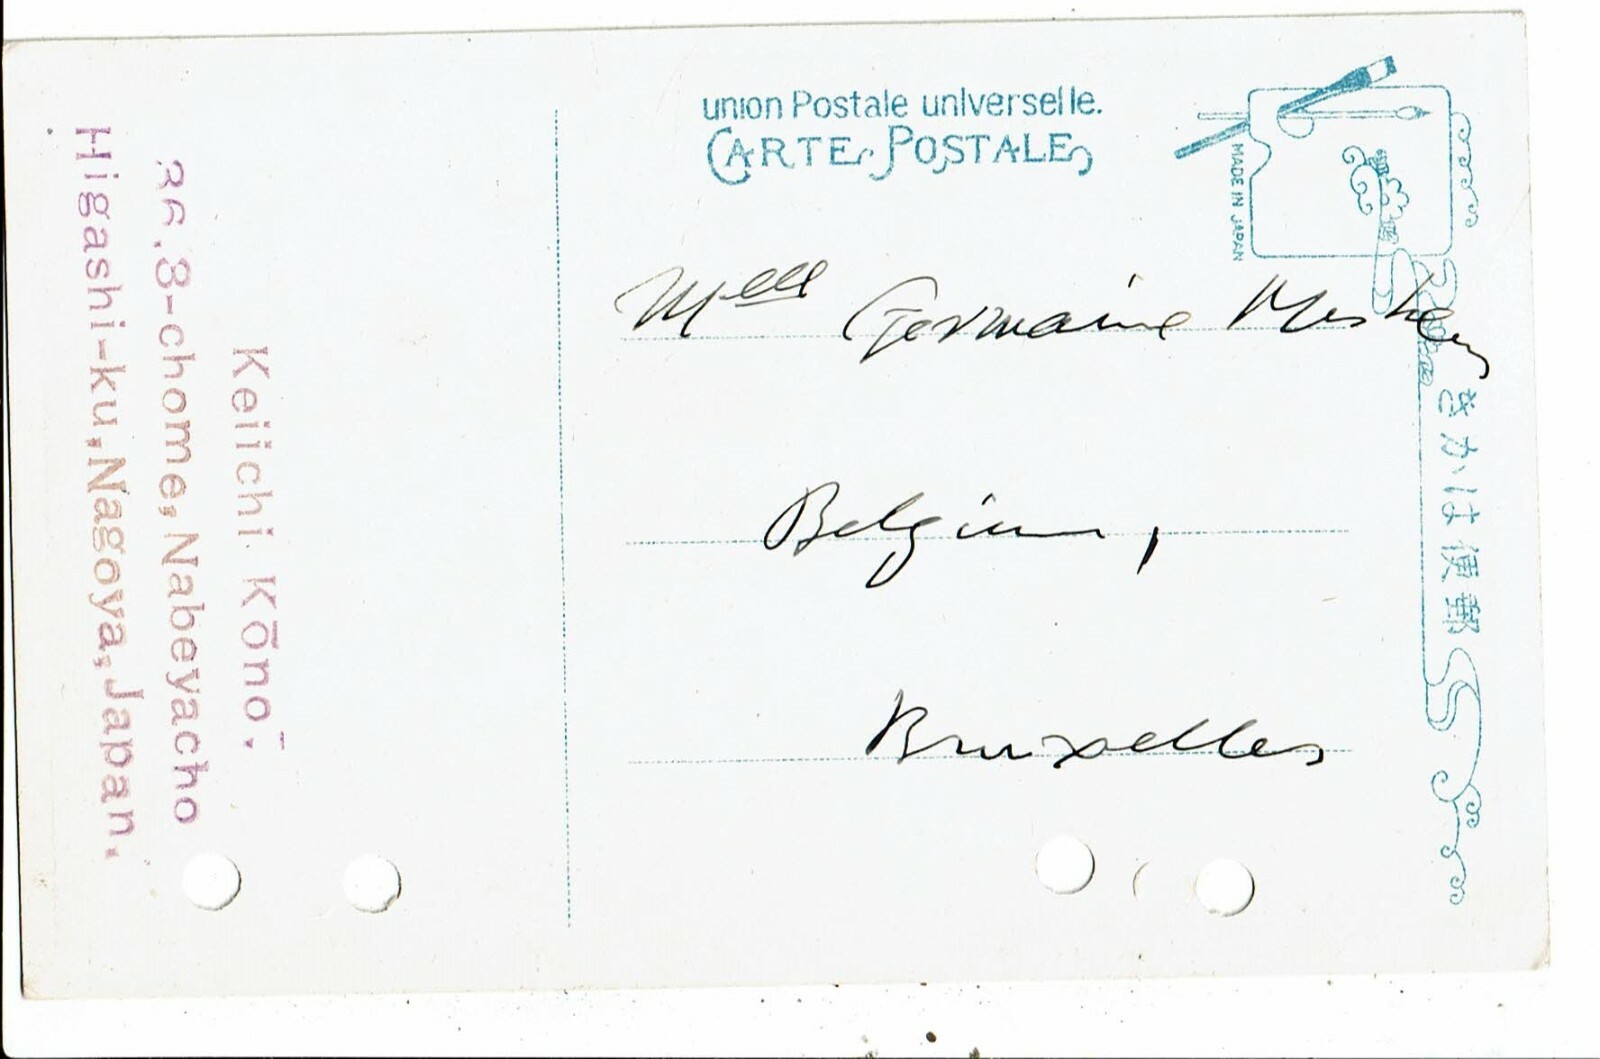 union Postale universelle.
CARTE POSTALE
MADE IN JAPAN
Melle Germaine
Belgium,
Bruxelles
きかは便郵
Keiichi Kōno;
36.3-chome, Nabeyacho
Higashi-ku, Nagoya, Japan.